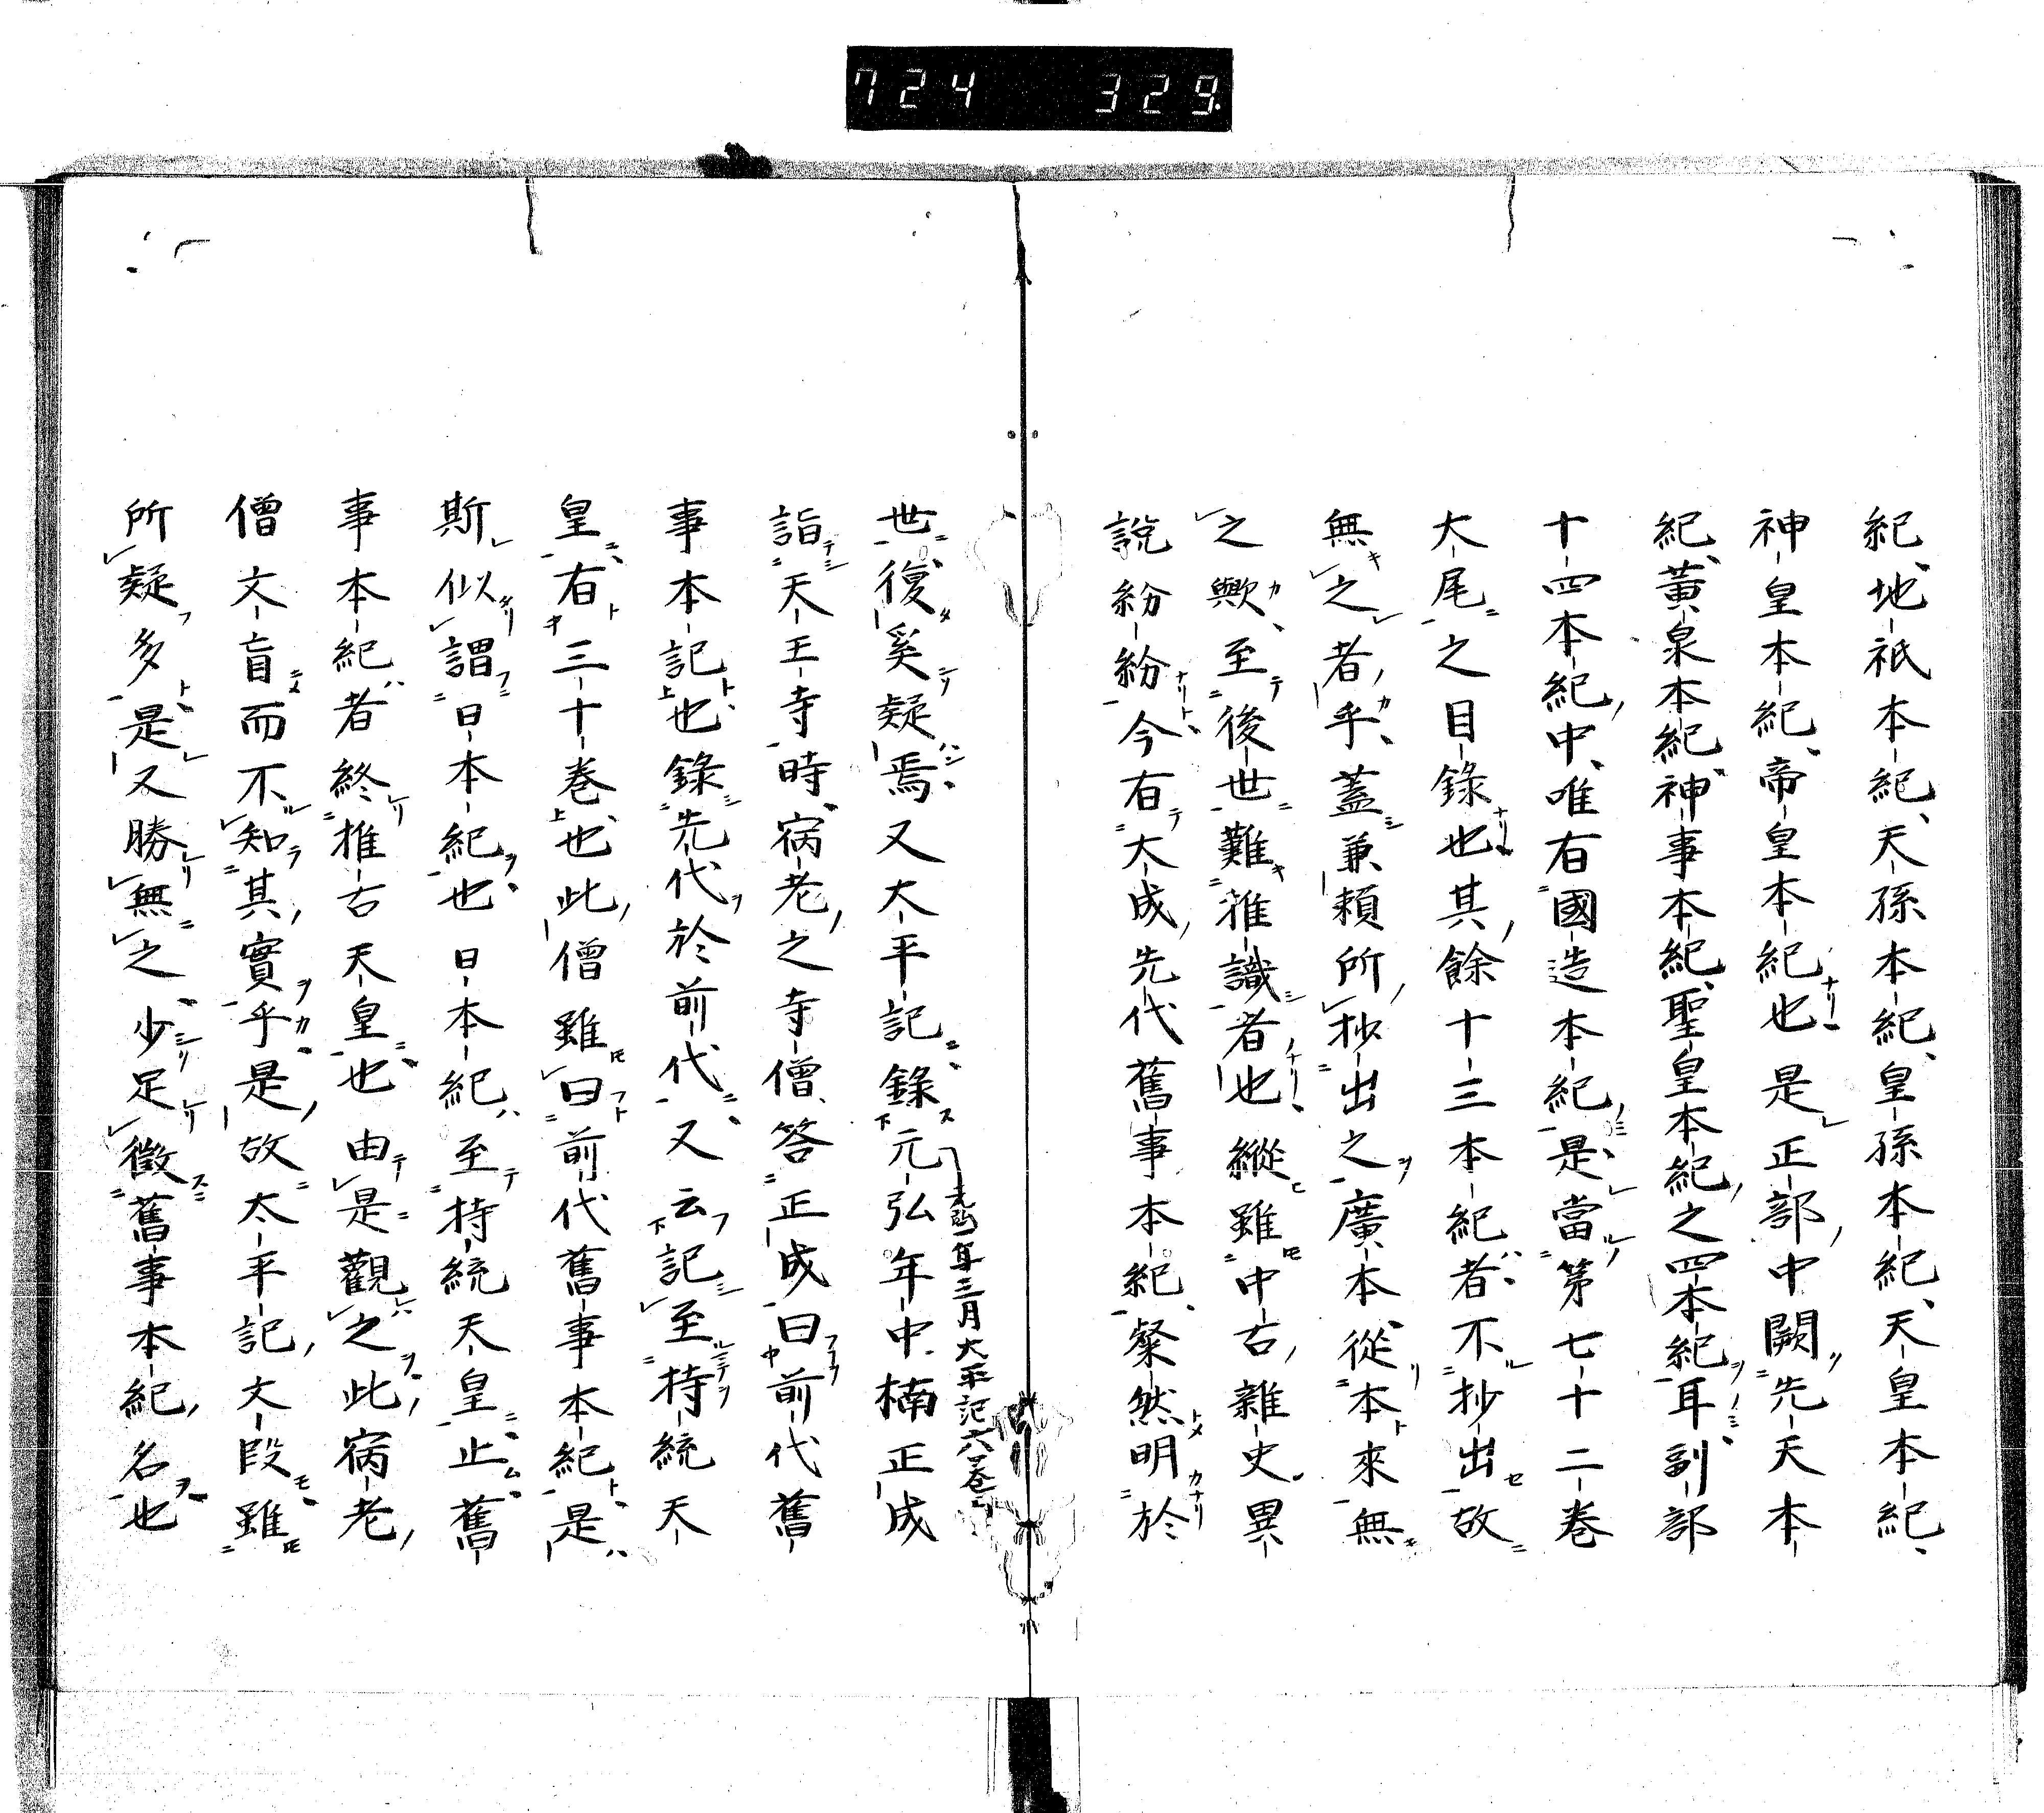 724 329
紀地祇本紀天孫本紀皇孫本紀天皇本紀
神皇本紀帝皇本紀也是正部中闕先天本
紀黄泉本紀神事本紀聖皇本紀之四本紀耳副部
十四本紀中唯有國造本紀是當第七十二巻
大尾之目錄也其餘十三本紀者不抄出故
無之者乎蓋兼頼所抄出之廣本從本來無
之歟至後世難推識者也縱雖中古雜史異
說紛紛今有大成先代舊事本紀粲然明於
世復奚疑焉又大平記錄元弘年中楠正成
元弘二年三月大平記六巻
詣天王寺時病老之寺僧答正成曰前代舊
事本記也錄先代於前代又云記至持統天
皇有三十巻也此僧雖曰前代舊事本紀是
斯似謂日本紀也日本紀至持統天皇止舊
事本紀者終推古天皇也由是觀之此病老
僧文盲而不知其實乎是故太平記文段雖
所疑多是又勝無之少足徵舊事本紀名也